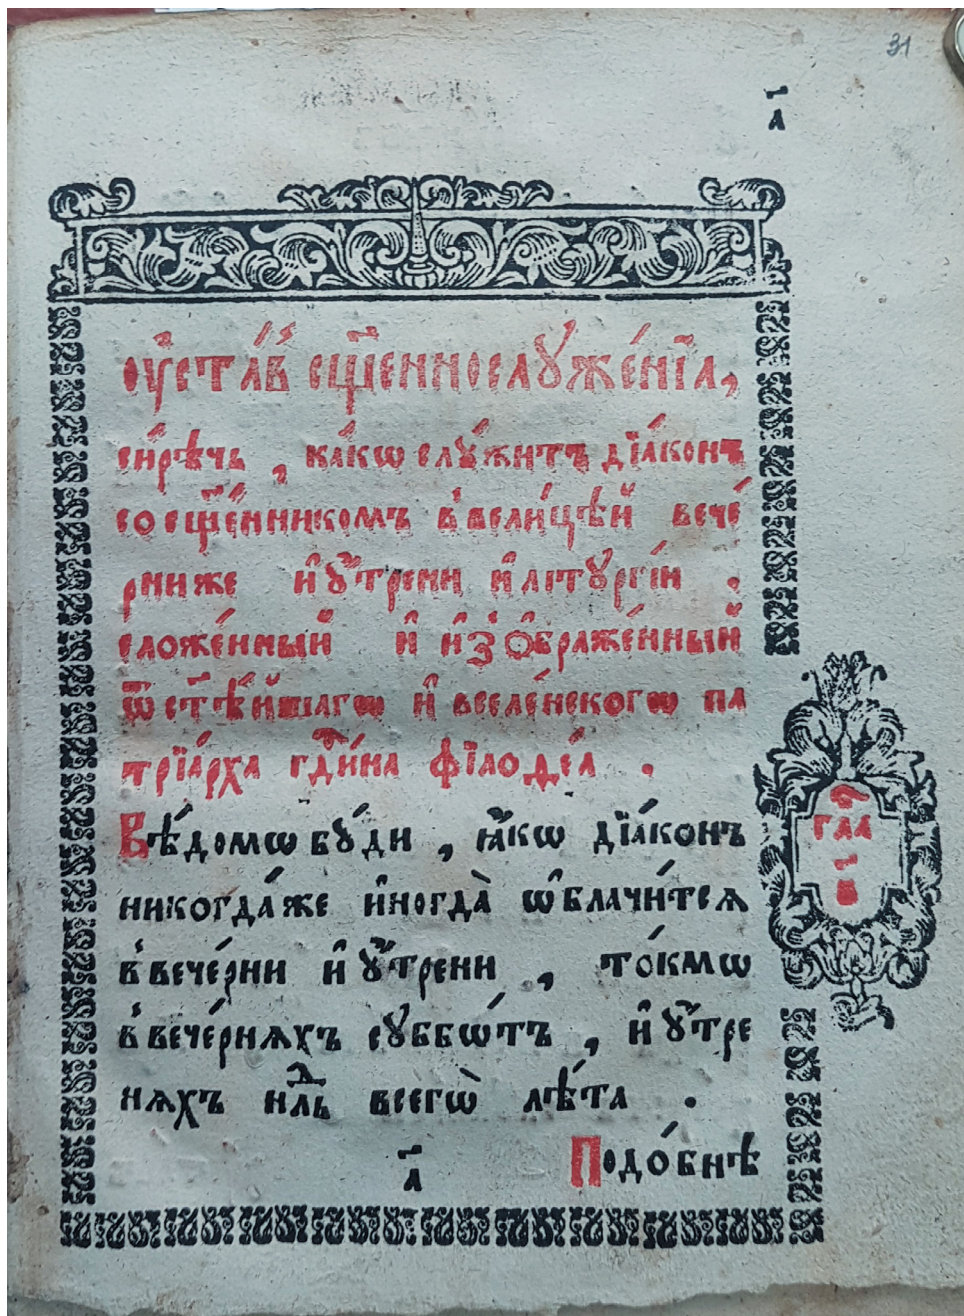 31
а҃
Оу҆ста́въ сщ҃еннослꙋже́нїѧ,
си́рѣчь, ка́кѡ слꙋ́житъ дїа́конъ
со сщ҃е́нникомъ в̾вели́цѣй вече́
рни же и҆ ᲂу҆́трени и҆ лїтꙋргі́и .
сложе́нный и҆ и҆з̾ѡ҆браже́нный
ѿ ст҃ѣ́йшагѡ и҆ вселе́нскогѡ па
трїа́рха гд҇и́на фїлоѳе́а .
Вѣ́домѡ бꙋ́ди , ꙗ҆́кѡ дїа́конъ
никогда́же и҆ногда̀ ѡ҆блачи́тсѧ
в̾вече́рни и҆ ᲂу҆́трени , то́кмѡ
в̾вече́рнѧхъ сꙋббѡ́тъ , и҆ ᲂу҆́тре
нѧхъ нлⷣь всегѡ̀ лѣ́та .
гла
в҃
а҃
Подо́бнѣ